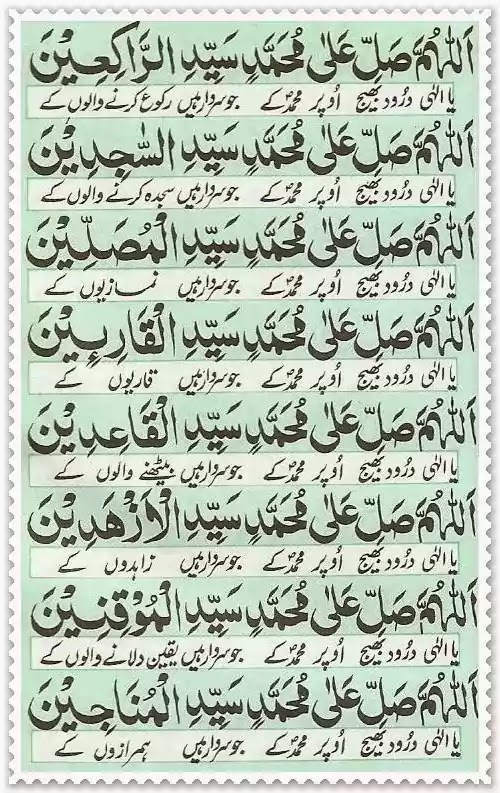 اَللّٰهُمَّ صَلِّ عَلٰى مُحَمَّدٍ سَيِّدِ الرَّاكِعِيْنَ
يا الٰہی درُود بھیج اُوپر محمدؐ کے جو سردار ہیں رکوع کرنے والوں کے
اَللّٰهُمَّ صَلِّ عَلٰى مُحَمَّدٍ سَيِّدِ السّٰجِدِيْنَ
يا الٰہی درُود بھیج اُوپر محمدؐ کے جو سردار ہیں سجدہ کرنے والوں کے
اَللّٰهُمَّ صَلِّ عَلٰى مُحَمَّدٍ سَيِّدِ الْمُصَلِّيْنَ
يا الٰہی درُود بھیج اُوپر محمدؐ کے جو سردار ہیں نمازیوں کے
اَللّٰهُمَّ صَلِّ عَلٰى مُحَمَّدٍ سَيِّدِ الْقَارِئِيْنَ
يا الٰہی درُود بھیج اُوپر محمدؐ کے جو سردار ہیں قاریوں کے
اَللّٰهُمَّ صَلِّ عَلٰى مُحَمَّدٍ سَيِّدِ الْقَاعِدِيْنَ
يا الٰہی درُود بھیج اُوپر محمدؐ کے جو سردار ہیں بیٹھنے والوں کے
اَللّٰهُمَّ صَلِّ عَلٰى مُحَمَّدٍ سَيِّدِ الْاَزْهَدِيْنَ
يا الٰہی درُود بھیج اُوپر محمدؐ کے جو سردار ہیں زاہدوں کے
اَللّٰهُمَّ صَلِّ عَلٰى مُحَمَّدٍ سَيِّدِ الْمُوْقِنِيْنَ
يا الٰہی درُود بھیج اُوپر محمدؐ کے جو سردار ہیں یقین دلانے والوں کے
اَللّٰهُمَّ صَلِّ عَلٰى مُحَمَّدٍ سَيِّدِ الْمُنَاجِيْنَ
يا الٰہی درُود بھیج اُوپر محمدؐ کے جو سردار ہیں ہمرازوں کے